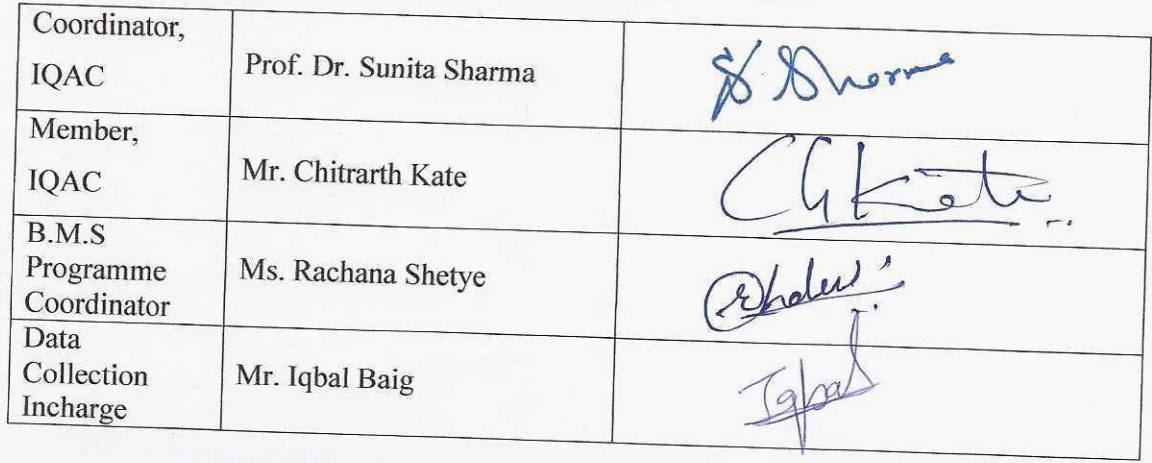 Coordinator,
IQAC
Prof. Dr. Sunita Sharma
S Sharma
Member,
IQAC
Mr. Chitrarth Kate
CGKate
B.M.S
Programme
Coordinator
Ms. Rachana Shetye
Data
Collection
Incharge
Mr. Iqbal Baig
Iqbal